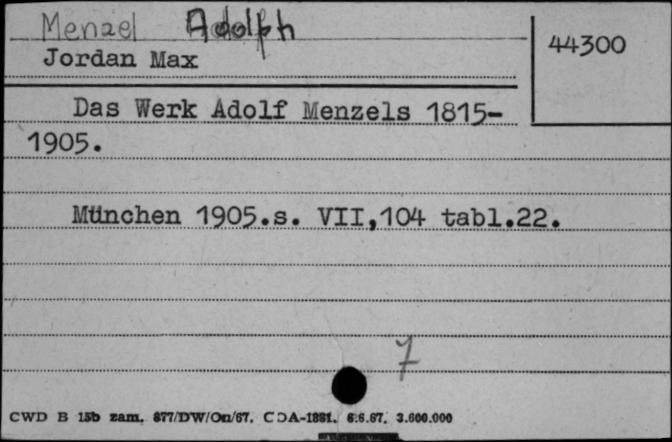 Menzel Adolph
44300
Jordan Max
Das Werk Adolf Menzels 1815-
1905.
München 1905.s. VII,104 tabl.22.
7
CWD B 15b zam. 877/DW/On/67. CDA-1881. 6.6.67. 3.600.000